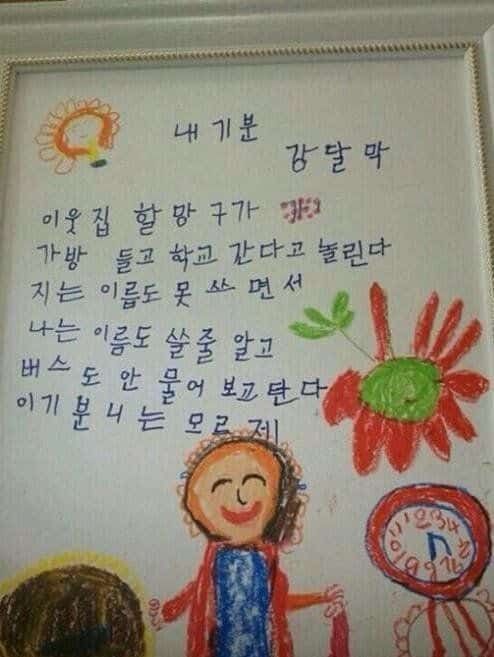 내 기분
강달막
이웃집 할망구가
가방 들고 학교 간다고 놀린다
지는 이릅도 못 쓰면서
나는 이름도 쓸줄 알고
버스도 안 물어 보고 탄다
이 기분 니는 모르제